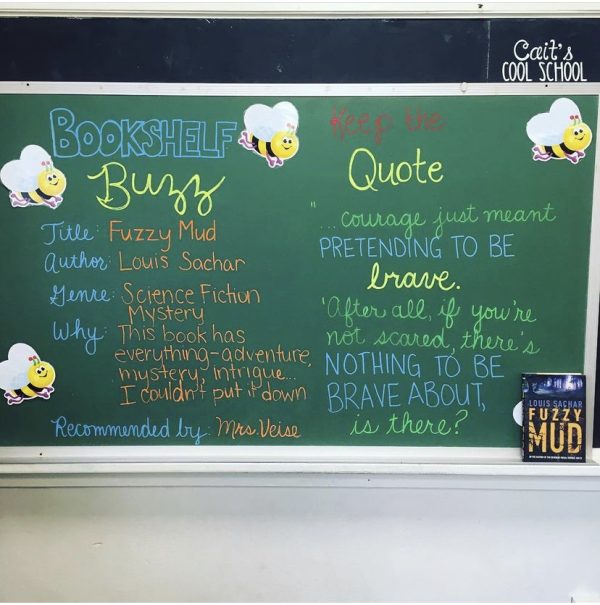 Cait's
COOL SCHOOL
BOOKSHELF
Buzz
Title: Fuzzy Mud
Author: Louis Sachar
Genre: Science Fiction
Mystery
Why: This book has
everything-adventure,
mystery, intrigue...
I couldn't put it down
Recommended by: Mrs. Veise
Keep the
Quote
"...courage just meant
PRETENDING TO BE
brave.
'After all, if you're
not scared, there's
NOTHING TO BE
BRAVE ABOUT,
is there?
LOUIS SACHAR
FUZZY
MUD